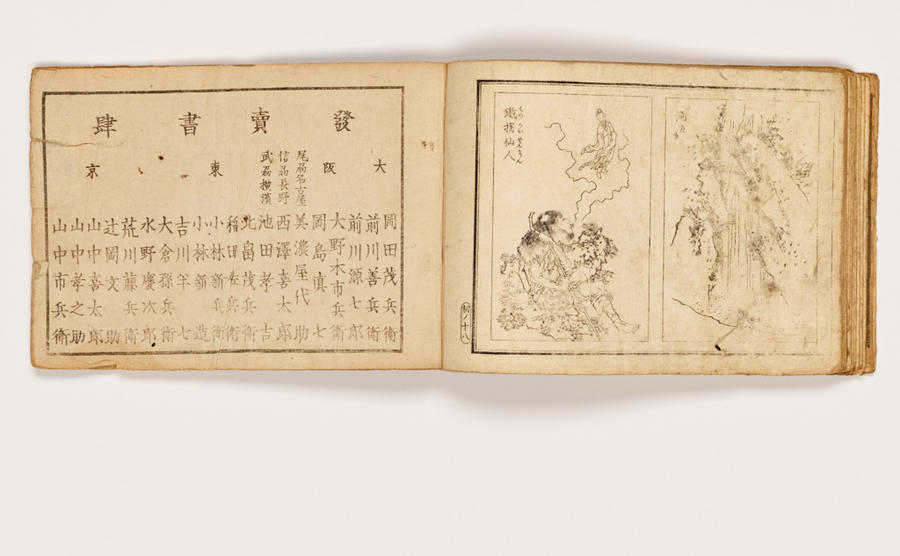 鐵拐仙人
初ノ十八
發賣書肆
大阪
岡田茂兵衛
前川善兵衛
前川源七郎
大野木市兵衛
岡島真七
尾刕名古屋
美濃屋代助
信刕長野
西澤喜太郎
武刕横濱
池田孝吉
東京
北畠茂兵衛
稲田佐兵衛
小林新兵衛
小林新造
吉川半七
大倉孫兵衛
水野慶次郎
荒川藤兵衛
辻岡文助
山中喜太郎
山中孝之助
山中市兵衛